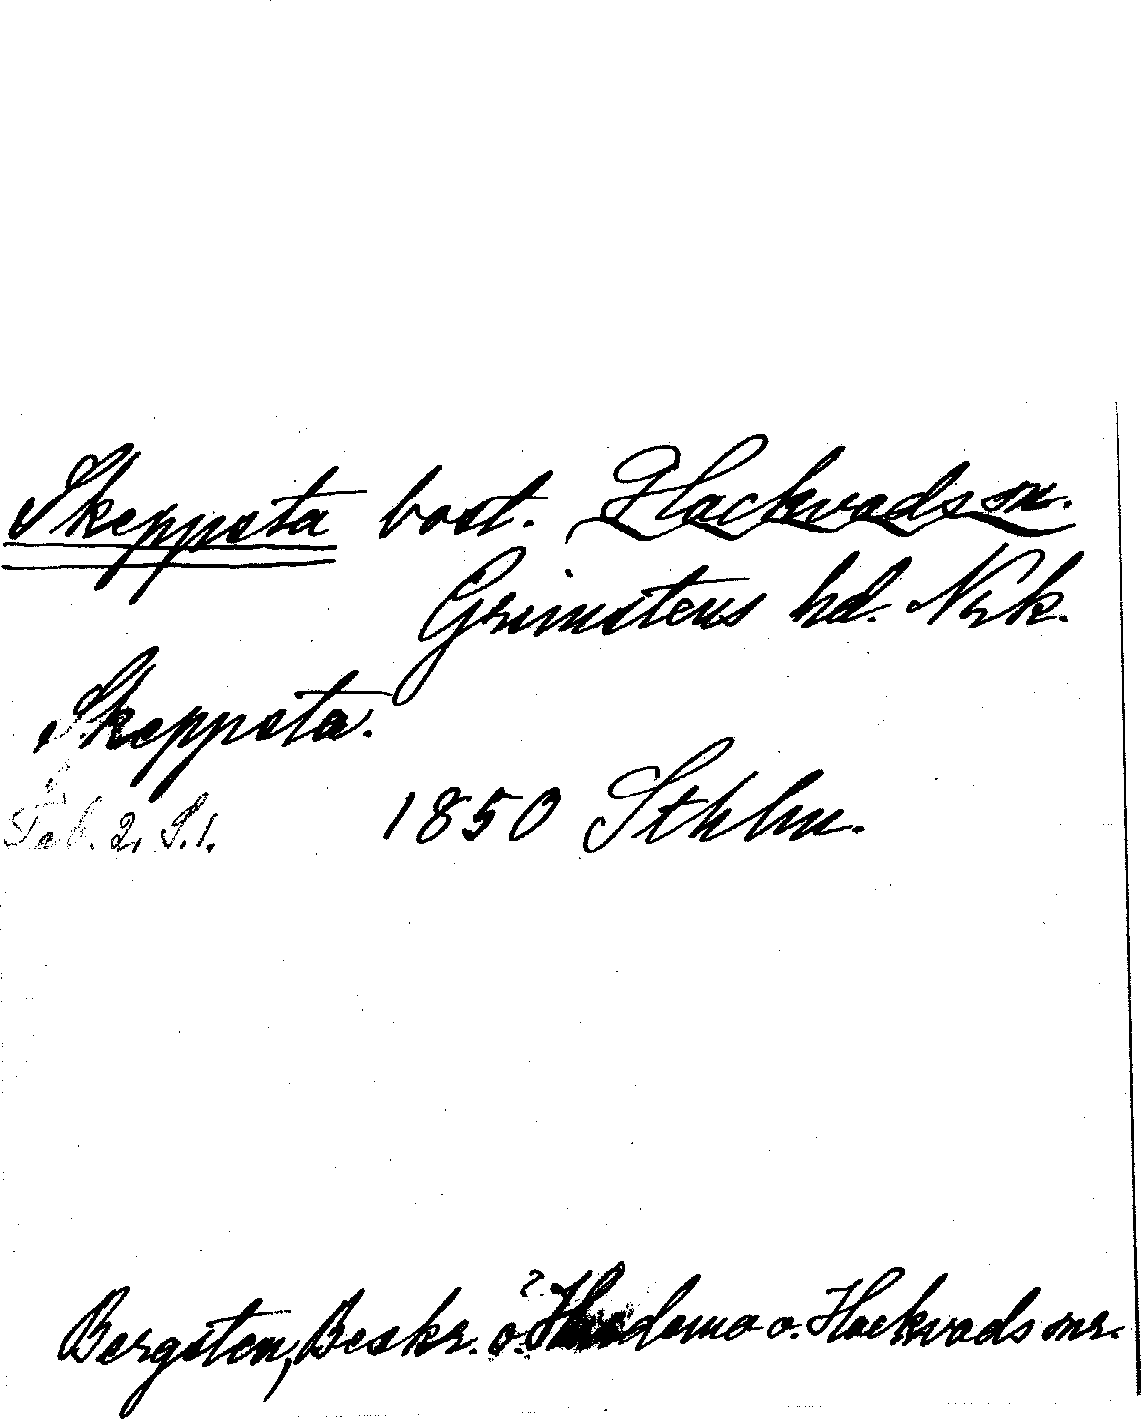 Skeppsta bost. Hackvads sn.
Grimstens hd. Nrk.
Skeppsta.
Tab. 2, S. 1. 1850 Sthlm.
Bergsten, Beskr. ö. Hardemo o. Hackvads snr.